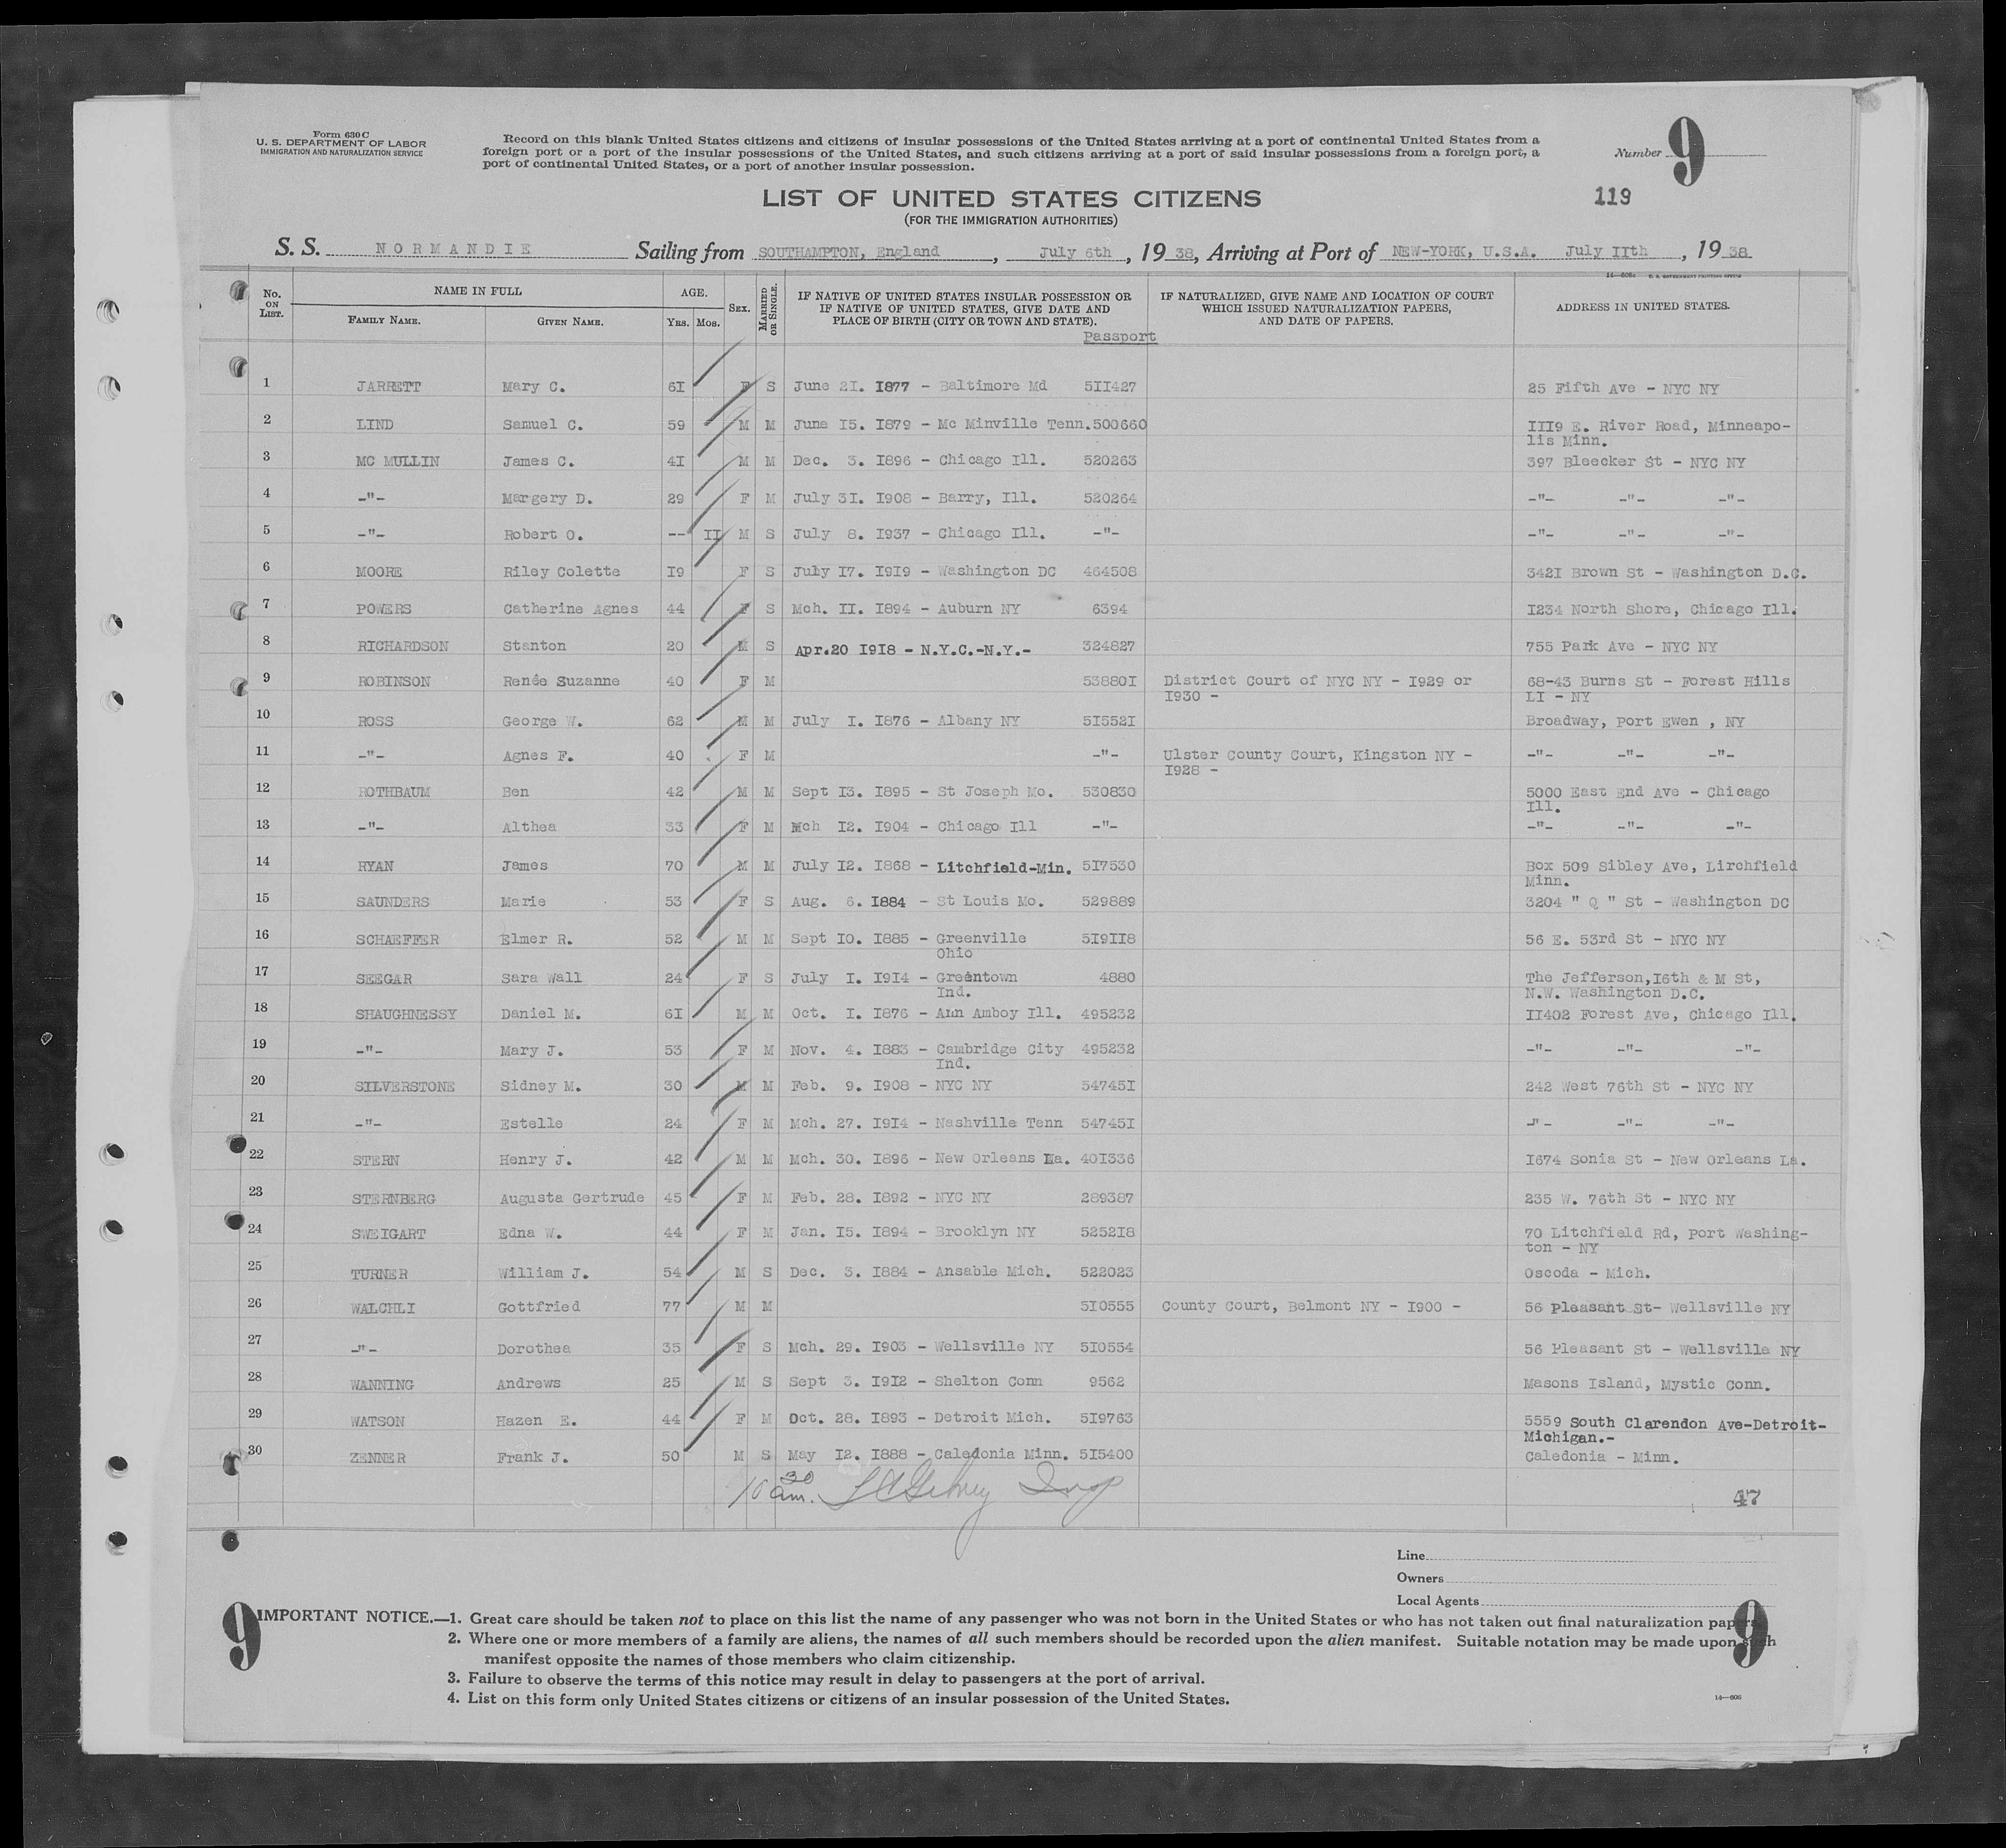 Form 630 C
U. S. DEPARTMENT OF LABOR
IMMIGRATION AND NATURALIZATION SERVICE
Record on this blank United States citizens and citizens of insular possessions of the United States arriving at a port of continental United States from a
foreign port or a port of the insular possessions of the United States, and such citizens arriving at a port of said insular possessions from a foreign port, a
port of continental United States, or a port of another insular possession.
Number 9
LIST OF UNITED STATES CITIZENS
119
(FOR THE IMMIGRATION AUTHORITIES)
S. S. NORMANDIE Sailing from SOUTHAMPTON, England, July 6th, 19 38, Arriving at Port of NEW-YORK, U.S.A. July IIth, 19 38
14—608a U. S. GOVERNMENT PRINTING OFFICE
No. ON LIST. NAME IN FULL FAMILY NAME. GIVEN NAME. AGE. YRS. MOS. SEX. MARRIED OR SINGLE. IF NATIVE OF UNITED STATES INSULAR POSSESSION OR IF NATIVE OF UNITED STATES, GIVE DATE AND PLACE OF BIRTH (CITY OR TOWN AND STATE). IF NATURALIZED, GIVE NAME AND LOCATION OF COURT WHICH ISSUED NATURALIZATION PAPERS, AND DATE OF PAPERS. ADDRESS IN UNITED STATES.
Passport
1 JARRETT Mary C. 6I F S June 2I. I877 - Baltimore Md 5II427 25 Fifth Ave - NYC NY
2 LIND Samuel C. 59 M M June I5. I879 - Mc Minville Tenn.500660 III9 E. River Road, Minneapo-
lis Minn.
3 MC MULLIN James C. 4I M M Dec. 3. I896 - Chicago Ill. 520263 397 Bleecker St - NYC NY
4 -"- Margery D. 29 F M July 3I. I908 - Barry, Ill. 520264 -"- -"- -"-
5 -"- Robert O. -- II M S July 8. I937 - Chicago Ill. -"- -"- -"- -"-
6 MOORE Riley Colette I9 F S July I7. I9I9 - Washington DC 464508 342I Brown St - Washington D.C.
7 POWERS Catherine Agnes 44 F S Mch. II. I894 - Auburn NY 6394 I234 North Shore, Chicago Ill.
8 RICHARDSON Stanton 20 M S Apr.20 I9I8 - N.Y.C.-N.Y.- 324827 755 Park Ave - NYC NY
9 ROBINSON Renée Suzanne 40 F M 53880I District Court of NYC NY - I929 or 68-43 Burns St - Forest Hills
I930 - LI - NY
10 ROSS George W. 62 M M July I. I876 - Albany NY 5I552I Broadway, Port Ewen , NY
11 -"- Agnes F. 40 F M -"- Ulster County Court, Kingston NY - -"- -"- -"-
I928 -
12 ROTHBAUM Ben 42 M M Sept I3. I895 - St Joseph Mo. 530830 5000 East End Ave - Chicago
Ill.
13 -"- Althea 33 F M Mch I2. I904 - Chicago Ill -"- -"- -"- -"-
14 RYAN James 70 M M July I2. I868 - Litchfield-Min. 5I7530 Box 509 Sibley Ave, Lirchfield
Minn.
15 SAUNDERS Marie 53 F S Aug. 6. I884 - St Louis Mo. 529889 3204 " Q " St - Washington DC
16 SCHAEFFER Elmer R. 52 M M Sept I0. I885 - Greenville 5I9II8 56 E. 53rd St - NYC NY
Ohio
17 SEEGAR Sara Wall 24 F S July I. I9I4 - Greentown 4880 The Jefferson,I6th & M St,
Ind. N.W. Washington D.C.
18 SHAUGHNESSY Daniel M. 6I M M Oct. I. I876 - Ann Amboy Ill. 495232 II402 Forest Ave, Chicago Ill.
19 -"- Mary J. 53 F M Nov. 4. I883 - Cambridge City 495232 -"- -"- -"-
Ind.
20 SILVERSTONE Sidney M. 30 M M Feb. 9. I908 - NYC NY 54745I 242 West 76th St - NYC NY
21 -"- Estelle 24 F M Mch. 27. I9I4 - Nashville Tenn 54745I -"- -"- -"-
22 STERN Henry J. 42 M M Mch. 30. I896 - New Orleans La. 40I336 I674 Sonia St - New Orleans La.
23 STERNBERG Augusta Gertrude 45 F M Feb. 28. I892 - NYC NY 289387 235 W. 76th St - NYC NY
24 SWEIGART Edna W. 44 F M Jan. I5. I894 - Brooklyn NY 5252I8 70 Litchfield Rd, Port Washing-
ton - NY
25 TURNER William J. 54 M S Dec. 3. I884 - Ansable Mich. 522023 Oscoda - Mich.
26 WALCHLI Gottfried 77 M M 5I0555 County Court, Belmont NY - I900 - 56 Pleasant St- Wellsville NY
27 -"- Dorothea 35 F S Mch. 29. I903 - Wellsville NY 5I0554 56 Pleasant St - Wellsville NY
28 WANNING Andrews 25 M S Sept 3. I9I2 - Shelton Conn 9562 Masons Island, Mystic Conn.
29 WATSON Hazen E. 44 F M Oct. 28. I893 - Detroit Mich. 5I9763 5559 South Clarendon Ave-Detroit-
Michigan.-
30 ZENNER Frank J. 50 M S May I2. I888 - Caledonia Minn. 5I5400 Caledonia - Minn.
10 30 am. Insp
47
Line
Owners
Local Agents
9 IMPORTANT NOTICE.—1. Great care should be taken not to place on this list the name of any passenger who was not born in the United States or who has not taken out final naturalization papers. 9
2. Where one or more members of a family are aliens, the names of all such members should be recorded upon the alien manifest. Suitable notation may be made upon such
manifest opposite the names of those members who claim citizenship.
3. Failure to observe the terms of this notice may result in delay to passengers at the port of arrival.
4. List on this form only United States citizens or citizens of an insular possession of the United States.
14—608